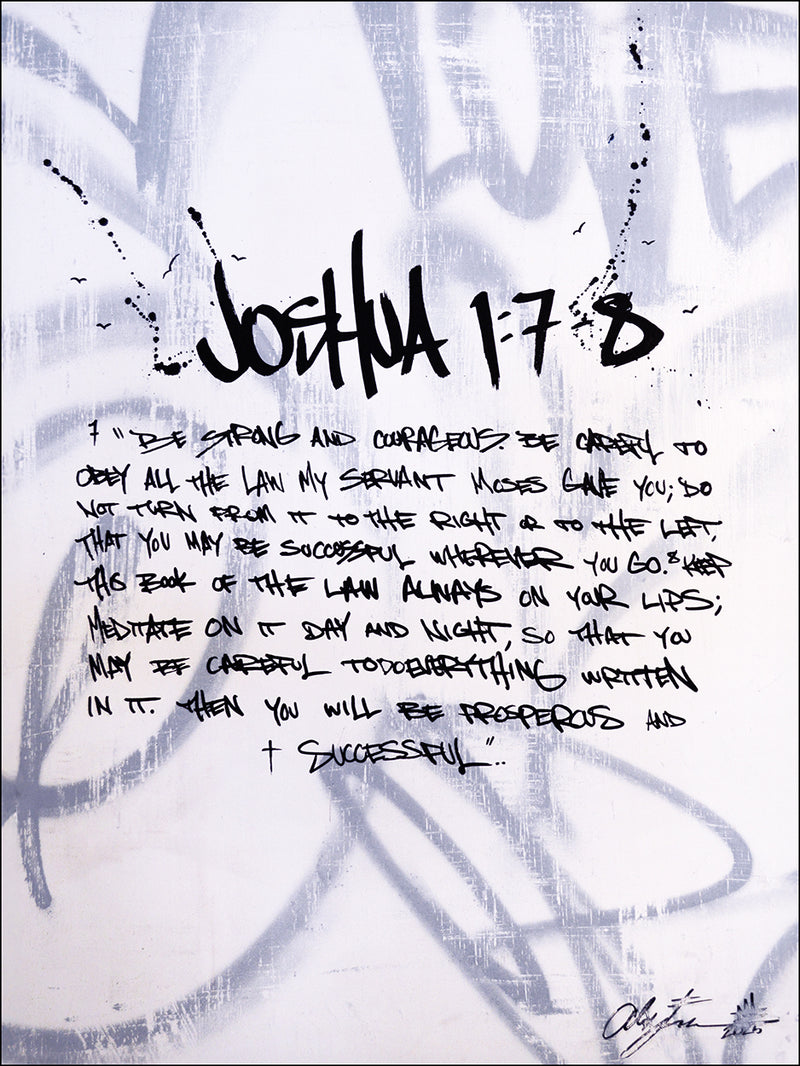 JOSHUA 1:7-8
7 "BE STRONG AND COURAGEOUS. BE CAREFUL TO
OBEY ALL THE LAW MY SERVANT MOSES GAVE YOU; DO
NOT TURN FROM IT TO THE RIGHT OR TO THE LEFT,
THAT YOU MAY BE SUCCESSFUL WHEREVER YOU GO. 8 KEEP
THIS BOOK OF THE LAW ALWAYS ON YOUR LIPS;
MEDITATE ON IT DAY AND NIGHT, SO THAT YOU
MAY BE CAREFUL TO DO EVERYTHING WRITTEN
IN IT. THEN YOU WILL BE PROSPEROUS AND
† SUCCESSFUL"..